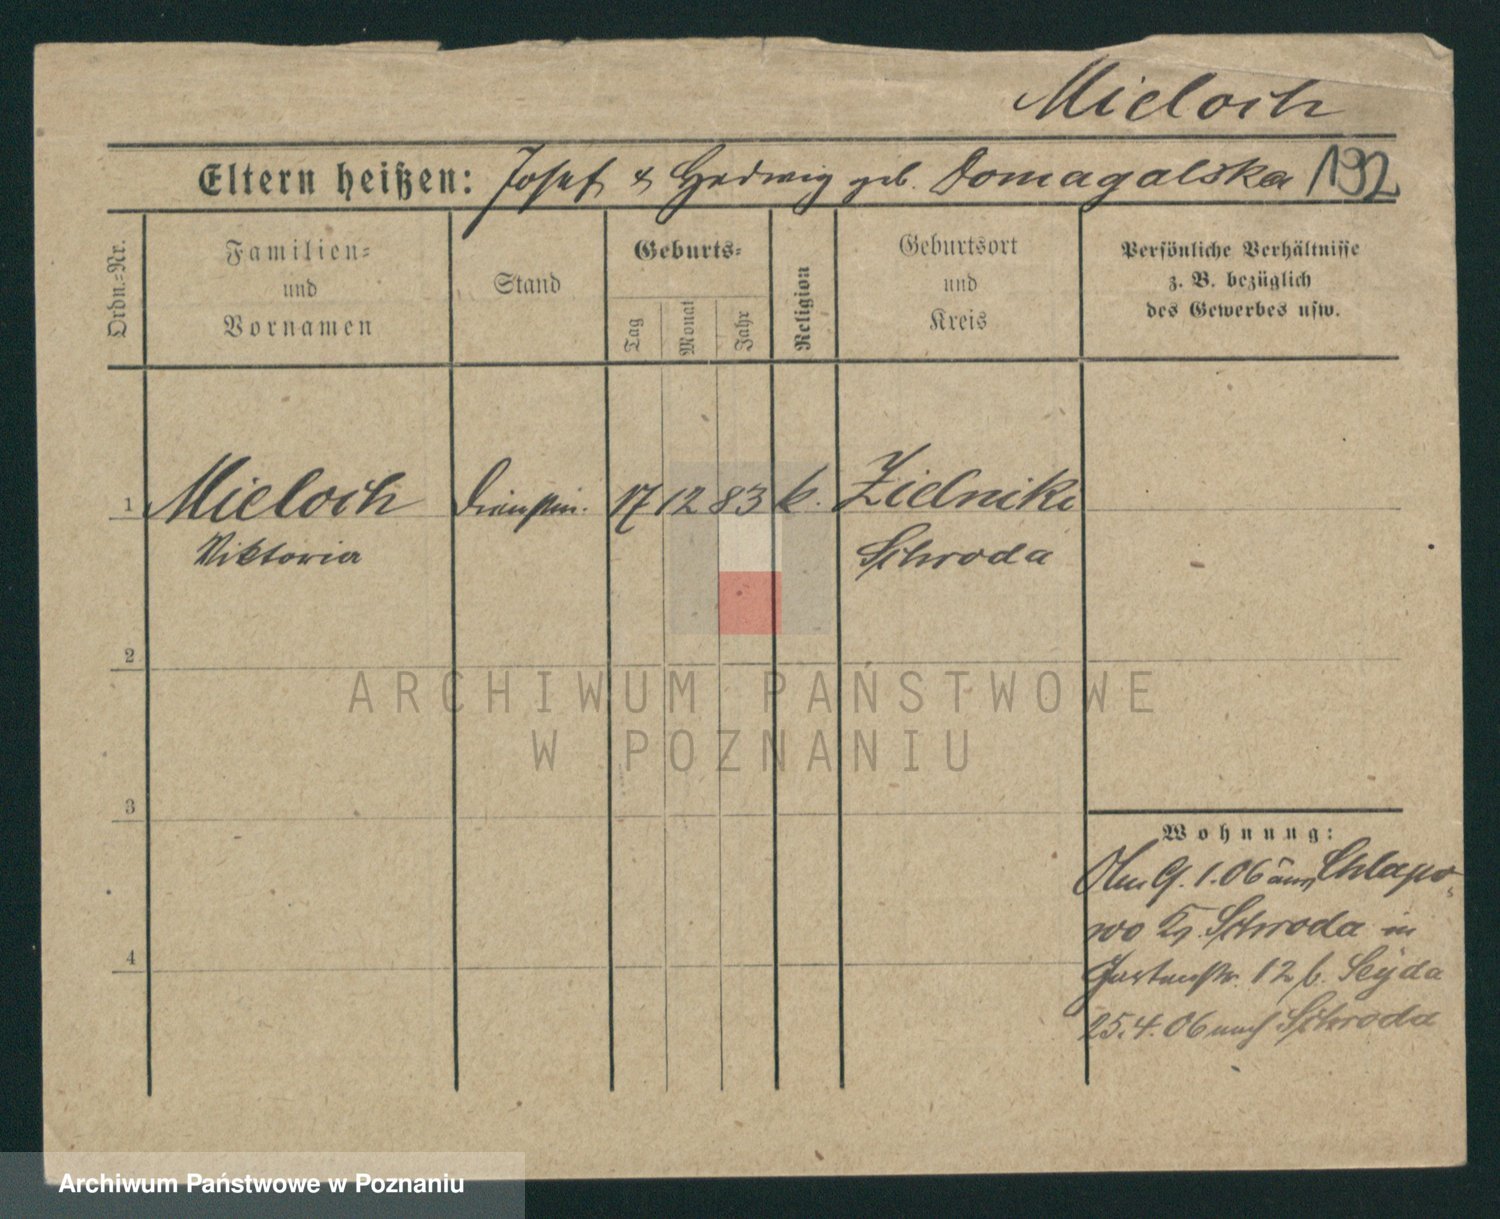 Mieloch
Eltern heißen: Josef & Hedwig geb. Domagalska 192
Ordn.-Nr.
Familien- und Vornamen
Stand
Geburts-
Tag
Monat
Jahr
Religion
Geburtsort und Kreis
Persönliche Verhältnisse
z. B. bezüglich
des Gewerbes usw.
1 Mieloch Dienstm. 17 12 83 k. Zielniki
Viktoria Schroda
2
ARCHIWUM PAŃSTWOWE
W POZNANIU
3
Wohnung:
9.1.06 aus Chlapo-
wo Kr. Schroda in
4
Gartenstr. 12 b. Seyda
25.4.06 nach Schroda
Archiwum Państwowe w Poznaniu